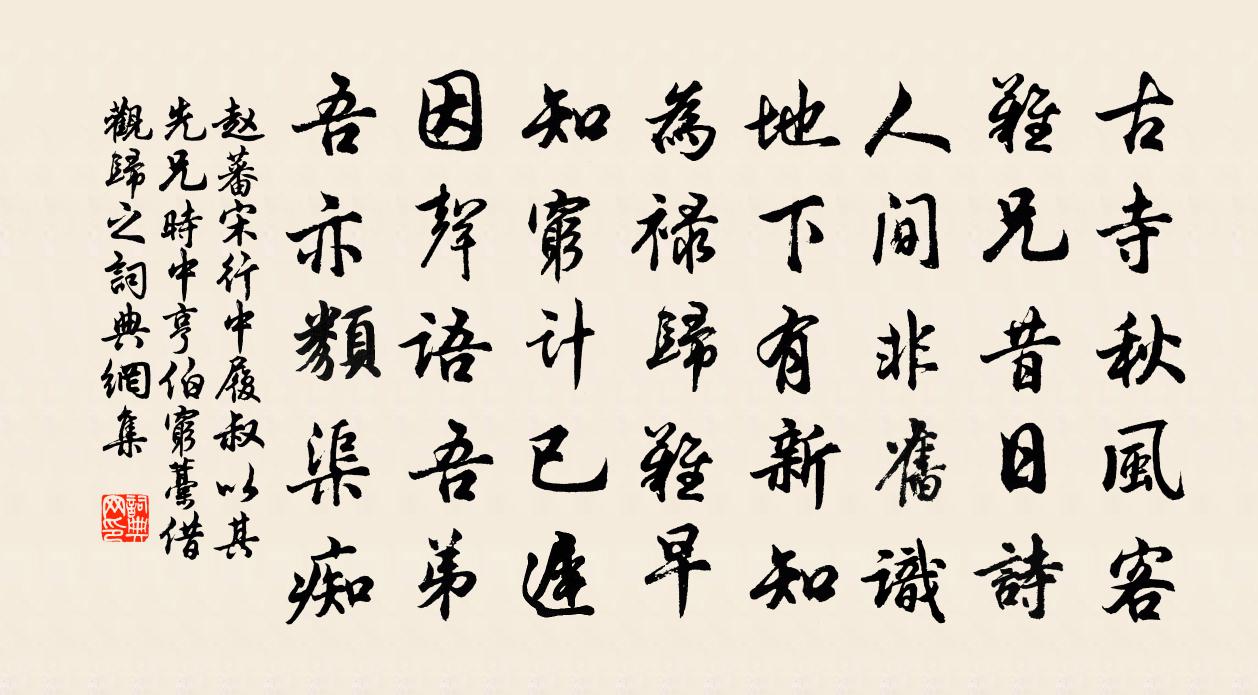 古寺秋風客
難兄昔日詩
人間非舊識
地下有新知
為祿歸難早
知窮計已遲
因聲語吾弟
吾亦類渠痴
赵蕃宋行中履叔以其
先兄時中亨伯窮藁借
觀歸之詞典網集
詞典網印